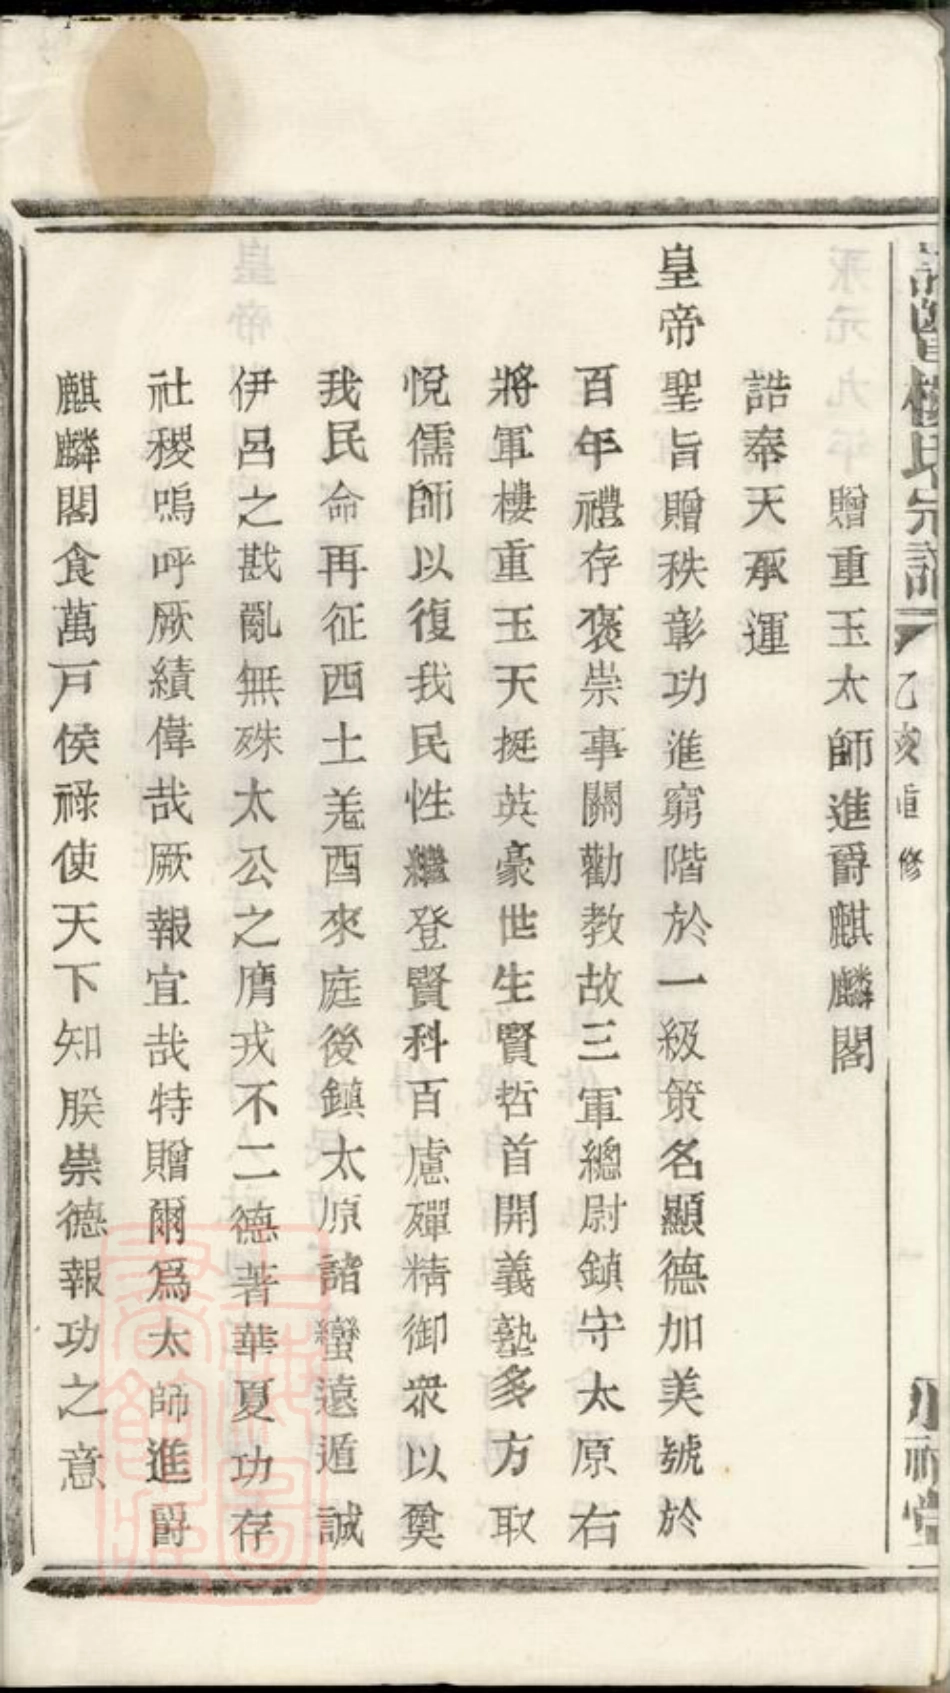 樓氏宗譜
乙亥重修
祠堂
贈重玉太師進爵麒麟閣
誥奉天承運
皇帝聖旨贈秩彰功進窮階於一級策名顯德加美號於
百年禮存褒崇事關勸教故三軍總尉鎮守太原右
將軍樓重玉天挺英豪世生賢哲首開義塾多方取
悅儒師以復我民性繼登賢科百慮殫精御衆以奠
我民命再征西土羗酉來庭後鎮太原諸蠻遠遁誠
伊呂之戡亂無殊太公之膺戎不二德著華夏功存
社稷嗚呼厥績偉哉厥報宜哉特贈爾爲太師進爵
麒麟閣食萬戶侯祿使天下知朕崇德報功之意